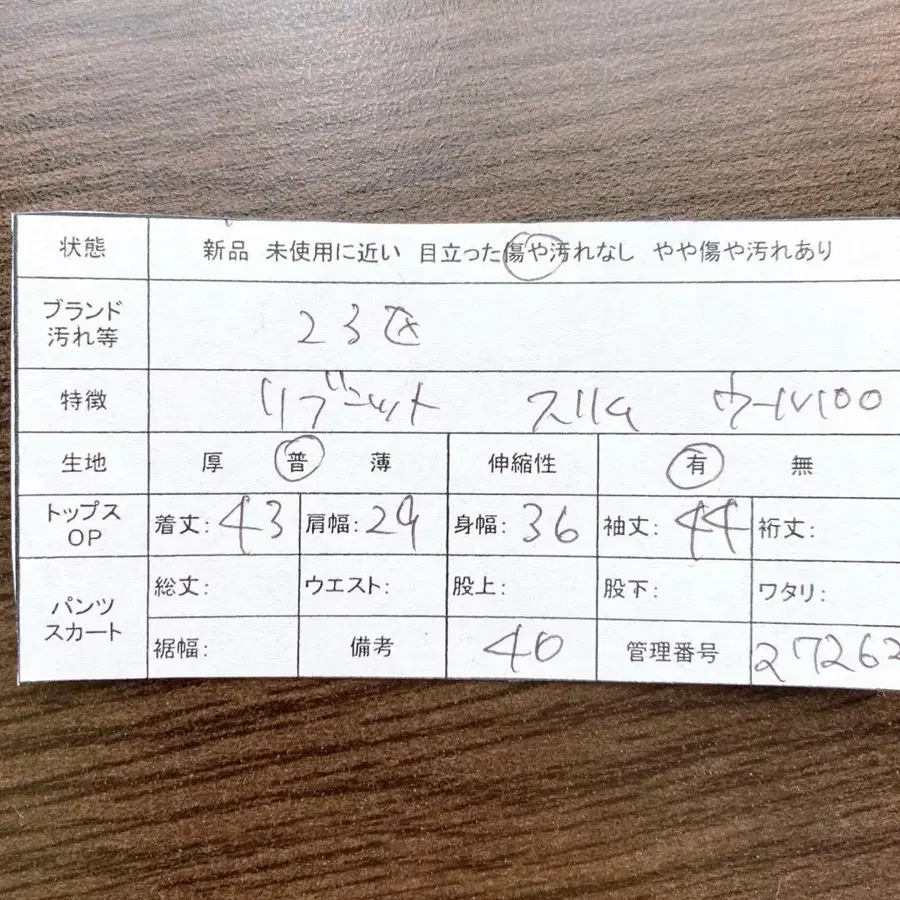 状態 新品 未使用に近い 目立った傷や汚れなし やや傷や汚れあり
ブランド
汚れ等 23区
特徴 リブニット スリム ウール100
生地 厚 普 薄 伸縮性 有 無
トップス
OP 着丈:43 肩幅:29 身幅:36 袖丈:44 裄丈:
パンツ
スカート 総丈: ウエスト: 股上: 股下: ワタリ:
裾幅: 備考 40 管理番号 27262